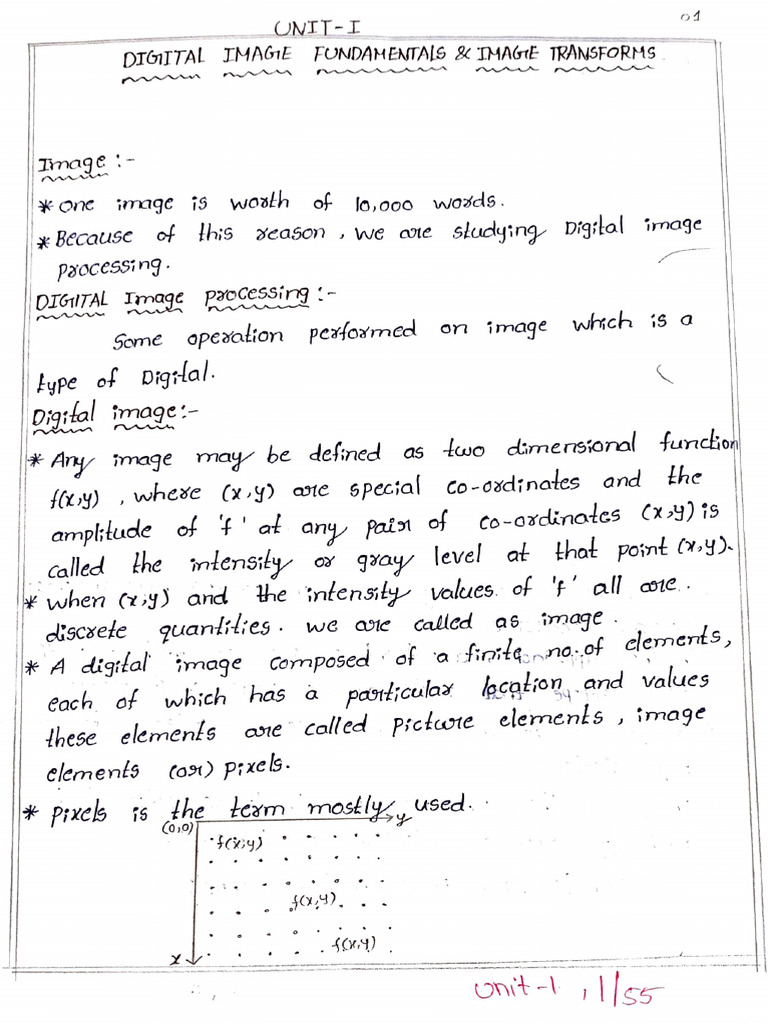 UNIT-I
01
DIGITAL IMAGE FUNDAMENTALS & IMAGE TRANSFORMS
Image :-
* One image is worth of 10,000 words.
* Because of this reason, we are studying Digital image
processing.
DIGITAL Image processing :-
Some operation performed on image which is a
type of Digital.
Digital image :-
* Any image may be defined as two dimensional function
f(x,y), where (x,y) are special co-ordinates and the
amplitude of 'f' at any pair of co-ordinates (x,y) is
called the intensity or gray level at that point (x,y).
* when (x,y) and the intensity values of 'f' all are.
discrete quantities. we are called as image.
* A digital image composed of a finite no. of elements,
each of which has a particular location and values
these elements are called picture elements, image
elements (or) pixels.
* pixels is the term mostly used.
(0,0)
y
f(x,y)
f(x,y)
f(x,y)
x
Unit-1, 1/55